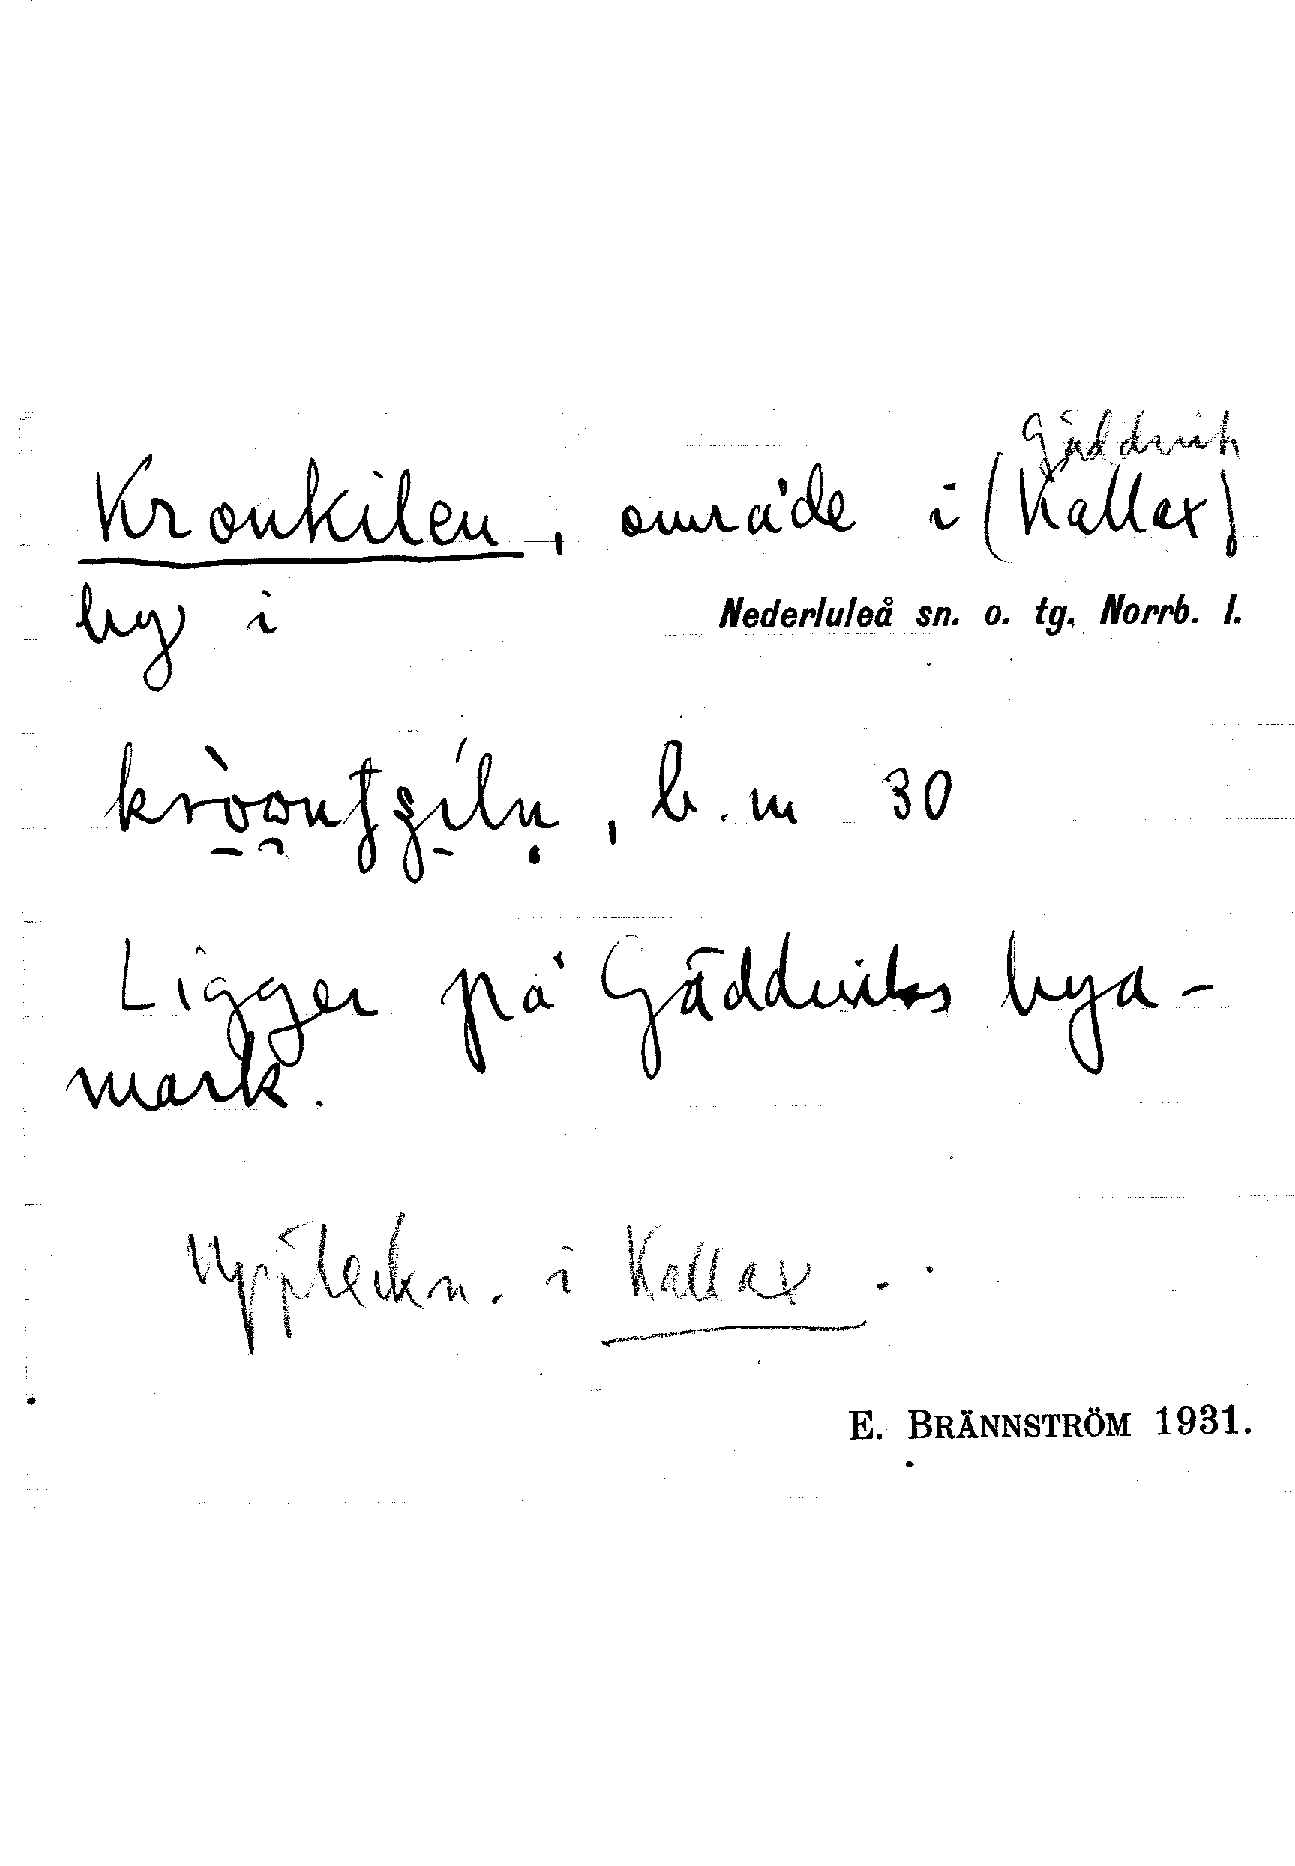 Gäddvik
Kronkilen, område i (Kallax)
by i Nederluleå sn. o. tg. Norrb. l.
, b. m 30
Ligger på Gäddviks bya-
mark.
Uppteckn. i Kallax.
E. BRÄNNSTRÖM 1931.